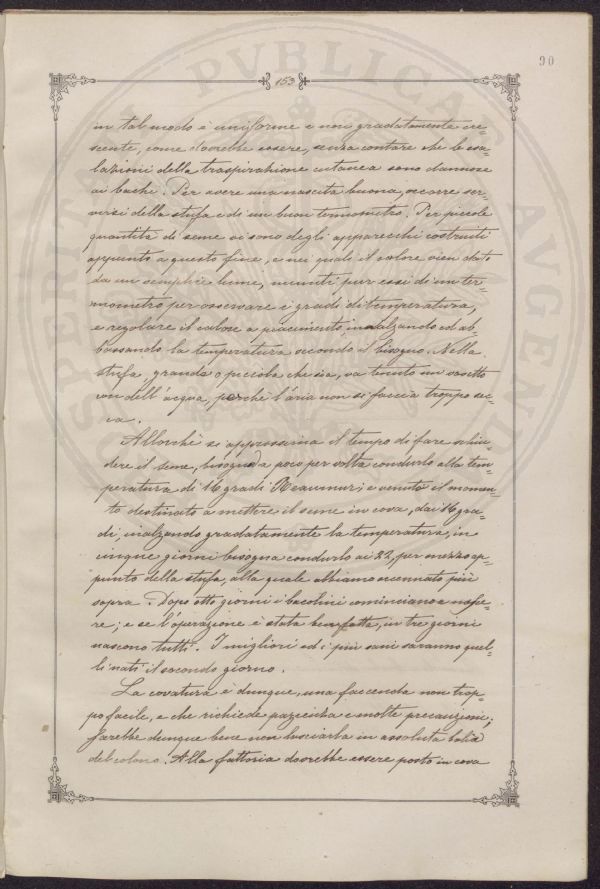 90
153
in tal modo è uniforme e non gradatamente cre-
scente, come dovrebbe essere, senza contare che le esa-
lazioni della traspirazione cutanea sono dannose
ai bachi. Per avere una nascita buona, occorre ser-
virsi della stufa e di un buon termometro. Per piccole
quantità di seme vi sono degli apparecchi costruiti
appunto a questo fine, e nei quali il calore vien dato
da un semplice lume, muniti pur essi di un ter-
mometro per osservare i gradi di temperatura,
e regolare il calore a piacimento inalzando ed ab-
bassando la temperatura secondo il bisogno. Nella
stufa, grande o piccola che sia, va tenuto un vasetto
con dell'acqua, perché l'aria non si faccia troppo sec-
ca.
Allorchè si approssima il tempo di fare schiu-
dere il seme, bisogna a poco per volta condurlo alla tem-
peratura di 16 gradi Reaumur; e venuto il momen-
to destinato a mettere il seme in cova, dai 16 gra-
di, inalzando gradatamente la temperatura, in
cinque giorni bisogna condurlo ai 22, per mezzo ap-
punto della stufa, alla quale abbiamo accennato più
sopra. Dopo otto giorni i bacolini cominciano a nasce-
re; e se l'operazione è stata ben fatta, in tre giorni
nascono tutti. I migliori ed i più sani saranno quel-
li nati il secondo giorno.
La covatura è dunque, una faccenda non trop-
po facile, e che richiede pazienza e molte precauzioni;
sarebbe dunque bene non lasciarla in assoluta balìa
del colono. Alla fattoria dovrebbe essere posto in cova